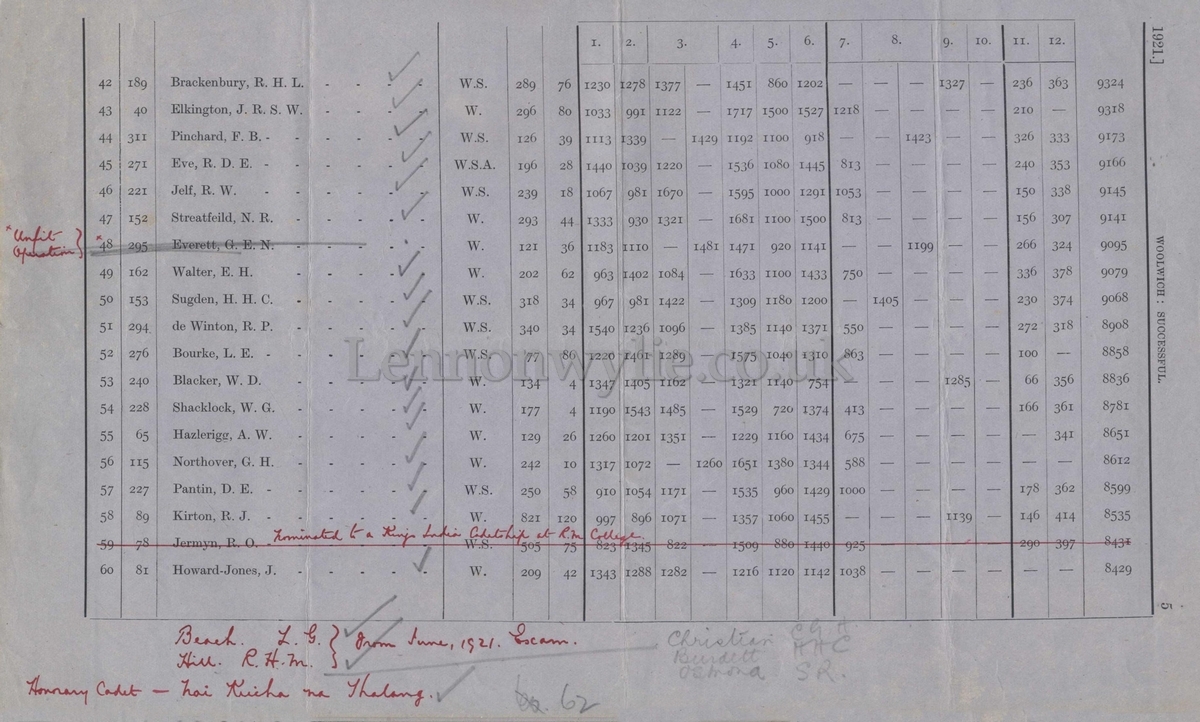 1921.]
WOOLWICH : SUCCESSFUL.
5
1. 2. 3. 4. 5. 6. 7. 8. 9. 10. 11. 12.
42 189 Brackenbury, R. H. L. - - - - W.S. 289 76 1230 1278 1377 — 1451 860 1202 — — — 1327 — 236 363 9324
43 40 Elkington, J. R. S. W. - - - - W. 296 80 1033 991 1122 — 1717 1500 1527 1218 — — — — 210 — 9318
44 311 Pinchard, F. B. - - - - - W.S. 126 39 1113 1339 — 1429 1192 1100 918 — — 1423 — — 326 333 9173
45 271 Eve, R. D. E. - - - - - W.S.A. 196 28 1440 1039 1220 — 1536 1080 1445 813 — — — — 240 353 9166
46 221 Jelf, R. W. - - - - - W.S. 239 18 1067 981 1670 — 1595 1000 1291 1053 — — — — 150 338 9145
47 152 Streatfeild, N. R. - - - - - W. 293 44 1333 930 1321 — 1681 1100 1500 813 — — — — 156 307 9141
* Unfit Operation } * 48 295 Everett, G. E. N. - - - - - W. 121 36 1183 1110 — 1481 1471 920 1141 — — 1199 — — 266 324 9095
49 162 Walter, E. H. - - - - - W. 202 62 963 1402 1084 — 1633 1100 1433 750 — — — — 336 378 9079
50 153 Sugden, H. H. C. - - - - - W.S. 318 34 967 981 1422 — 1309 1180 1200 — 1405 — — — 230 374 9068
51 294 de Winton, R. P. - - - - - W.S. 340 34 1540 1236 1096 — 1385 1140 1371 550 — — — — 272 318 8908
52 276 Bourke, L. E. - - - - - W.S. 77 86 1220 1461 1289 — 1575 1040 1310 863 — — — — 100 — 8858
53 240 Blacker, W. D. - - - - - W. 134 4 1347 1405 1162 — 1321 1140 754 — — — 1285 — 66 356 8836
54 228 Shacklock, W. G. - - - - - W. 177 4 1190 1543 1485 — 1529 720 1374 413 — — — — 166 361 8781
55 65 Hazlerigg, A. W. - - - - - W. 129 26 1260 1201 1351 — 1229 1160 1434 675 — — — — — 341 8651
56 115 Northover, G. H. - - - - - W. 242 10 1317 1072 — 1260 1651 1380 1344 588 — — — — — — 8612
57 227 Pantin, D. E. - - - - - W.S. 250 58 910 1054 1171 — 1535 960 1429 1000 — — — — 178 362 8599
58 89 Kirton, R. J. - - - - - W. 821 120 997 896 1071 — 1357 1060 1455 — — — 1139 — 146 414 8535
Nominated to a Kings India Cadetship at R.M. College.
59 78 Jermyn, R. O. - W.S. 505 75 823 1345 822 — 1509 880 1440 925 — — — — 290 397 8431
60 81 Howard-Jones, J. - - - - - W. 209 42 1343 1288 1282 — 1216 1120 1142 1038 — — — — — — 8429
Lennonwylie.co.uk
Beach. L. G. } from June, 1921. Exam.
Hill. R. H. M.
Honorary Cadet —
Christian C G H.
Burdett H H C
S R.
62